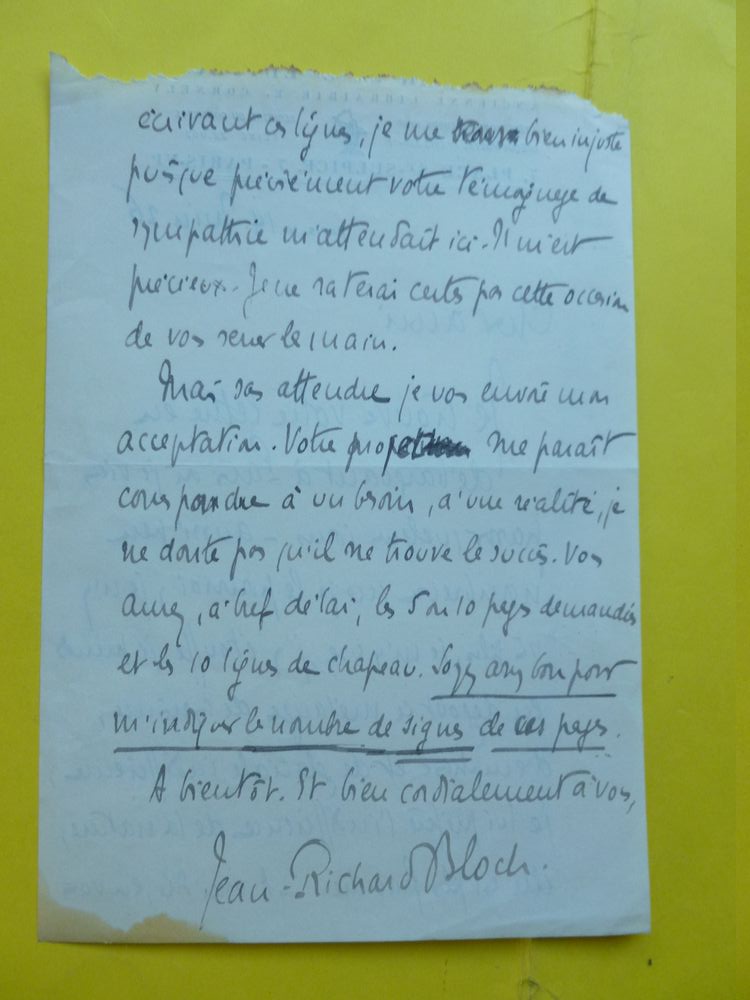 écrivant ces lignes, je me bien injuste
puisque précisément votre témoignage de
sympathie m'attendait ici. Il m'est
précieux. Je ne raterai certes pas cette occasion
de vous serrer la main.
Mais sans attendre je vous envoie mon
acceptation. Votre projet me paraît
correspondre à un besoin, à une réalité, je
ne doute pas qu'il ne trouve le succès. Vous
aurez, à bref délai, les 5 ou 10 pages demandées
et les 10 lignes de chapeau. Soyez assez bon pour
m'indiquer le nombre de signes de ces pages.
A bientôt. Et bien cordialement à vous,
Jean-Richard Bloch.